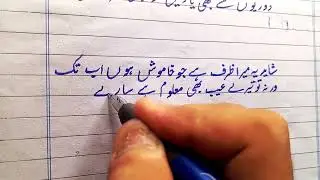 دوریوں کے بھی
شاید یہ میرا ظرف ہے جو خاموش ہوں اب تک
ورنہ تو تیرے عیب بھی معلوم ہے سارے